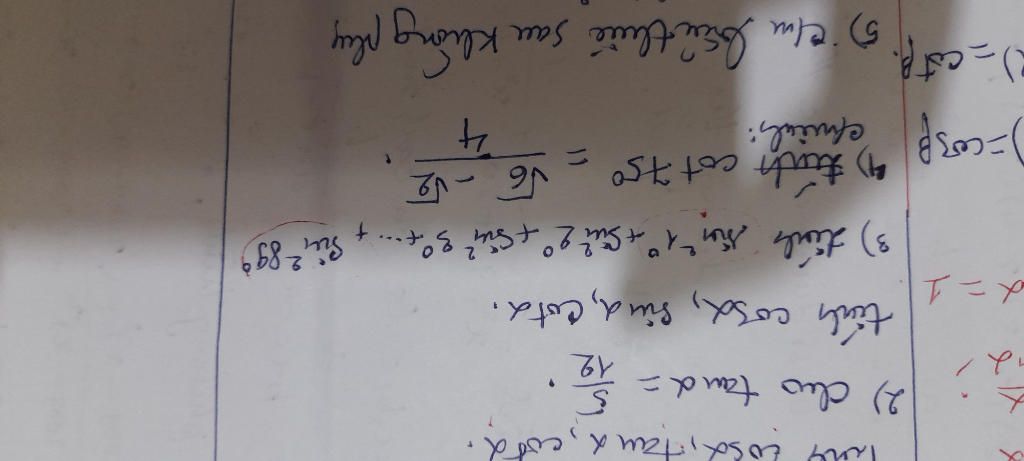 tính cosα, tanα, cotα.
2) Cho tanα = 5/12.
tính cosα, sinα, cotα.
3) tính sin²1° + sin²2° + sin²3° + ... + sin²89°
4) chứng minh: cot 75° = (√6 - √2)/4.
5) c/m biểu thức sau không phụ
α
α = 1
) = cosβ
) = cotβ.